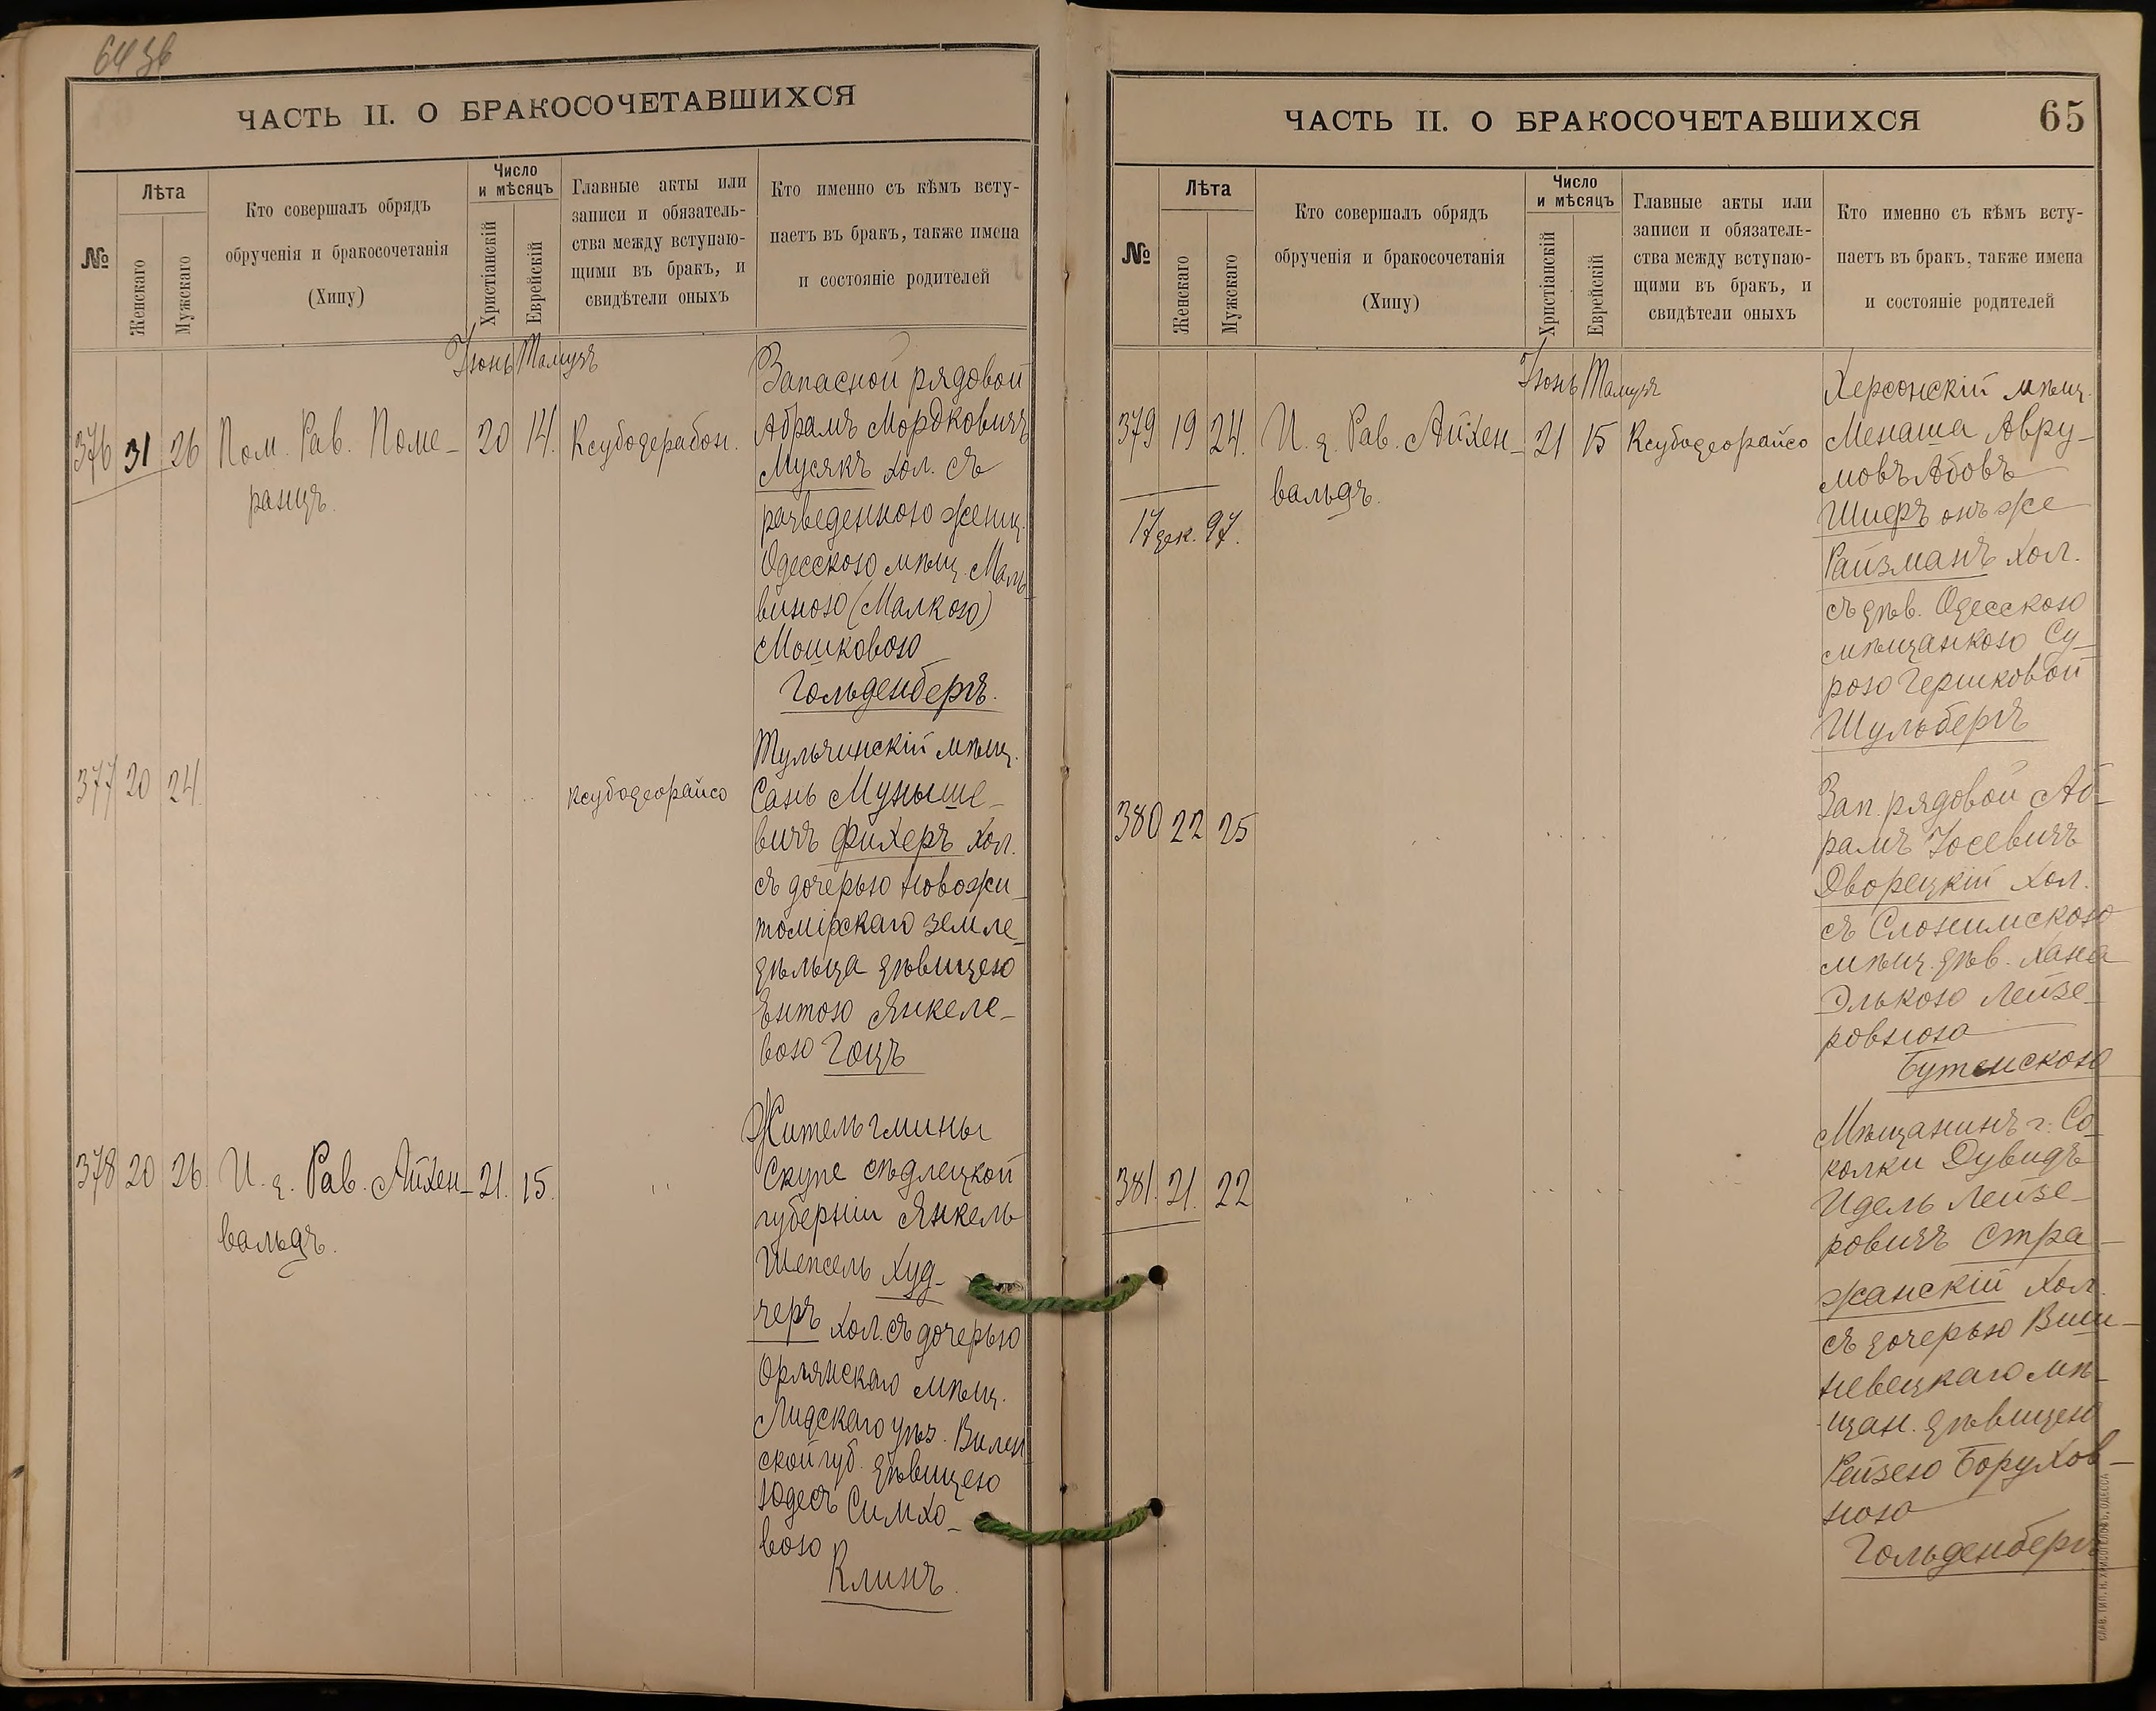 64 зв
ЧАСТЬ II. О БРАКОСОЧЕТАВШИХСЯ
№
Лѣта
Женскаго
Мужскаго
Кто совершалъ обрядъ
обрученія и бракосочетанія
(Хипу)
Число
и мѣсяцъ
Христіанскій
Еврейскій
Главные акты или
записи и обязатель-
ства между вступаю-
щими въ бракъ, и
свидѣтели оныхъ
Кто именно съ кѣмъ всту-
паетъ въ бракъ, также имена
и состояніе родителей
Іюнь Тамузъ
376 31 26 Пом. Рав. Поме-
ранцъ.
20 14. Ксубодерабон.
Запасной рядовой
Абрамъ Мордковичъ
Мусякъ хол. съ
разведенною женщ.
Одесскою мѣщ. Маль-
виною (Малкою)
Мошковою
Гольденбергъ.
377 20 24 .. .. .. Ксубодеорайсо
Тульчинскій мѣщ.
Сань Мунише-
вичъ Фихеръ хол.
съ дочерью Новожи-
томірскаго земле-
дѣльца дѣвицею
Ентою Янкеле-
вою Гоцъ
378 20 26. И. д. Рав. Айхен-
вальдъ.
21. 15. ..
Житель гмины
Скупе Сѣдлецкой
губерніи Янкель
Шепсель Худ-
черъ хол. съ дочерью
Орлянскаго мѣщ.
Лидскаго уѣз. Вилен-
ской губ. дѣвицею
Юдесъ Симхо-
вою
Клинъ.
ЧАСТЬ II. О БРАКОСОЧЕТАВШИХСЯ
65
№
Лѣта
Женскаго
Мужскаго
Кто совершалъ обрядъ
обрученія и бракосочетанія
(Хипу)
Число
и мѣсяцъ
Христіанскій
Еврейскій
Главные акты или
записи и обязатель-
ства между вступаю-
щими въ бракъ, и
свидѣтели оныхъ
Кто именно съ кѣмъ всту-
паетъ въ бракъ, также имена
и состояніе родителей
Іюнь Тамузъ
379 19 24. И. д. Рав. Айхен-
вальдъ.
17 дек. 97.
21 15 Ксубодеорайсо
Херсонскій мѣщ.
Менаша Авру-
мовъ Абовъ
Шперъ онъ же
Райзманъ хол.
съ дѣв. Одесскою
мѣщанкою Су-
рою Гершковой
Шульбергъ
380 22 25 .. .. .. ..
Зап. рядовой Аб-
рамъ Іосевичъ
Дворецкій хол.
съ Слонимскою
мѣщ. дѣв. Хана
Элькою Лейзе-
ровною
Бутенскою
381. 21. 22 .. .. .. ..
Мѣщанинъ г. Со-
колки Дувидъ
Идель Лейзе-
ровичъ Стра-
жанскій хол.
съ дочерью Виш-
невецкаго мѣ-
щан. дѣвицею
Рейзею Борухов-
ною
Гольденбергъ
СЛАВ. ТИП. Н. ХРИСОГЕЛОСЪ, ОДЕССА